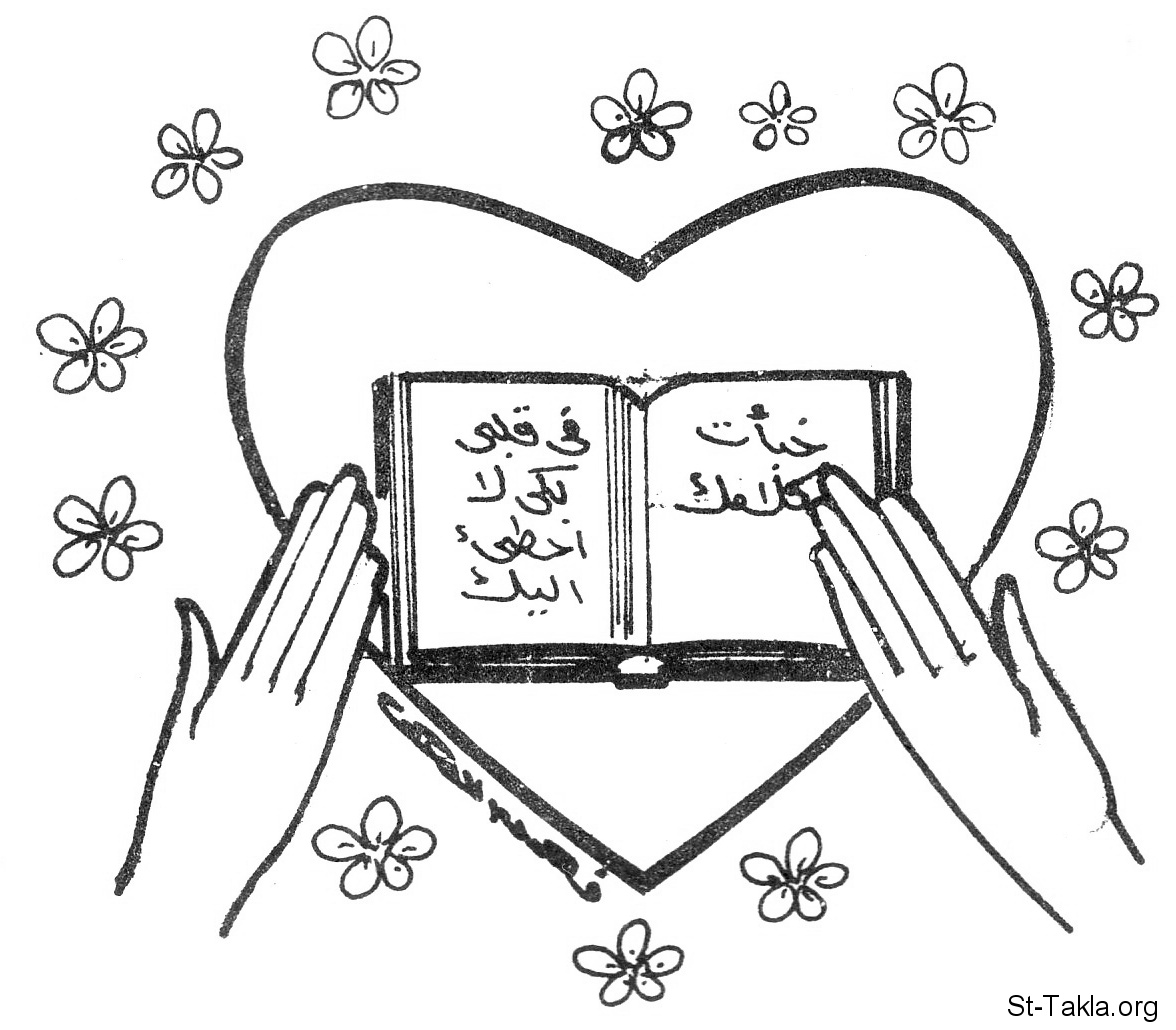 خبأت
كلامك
فى قلبى
لكى لا
أخطئ
اليك
St-Takla.org